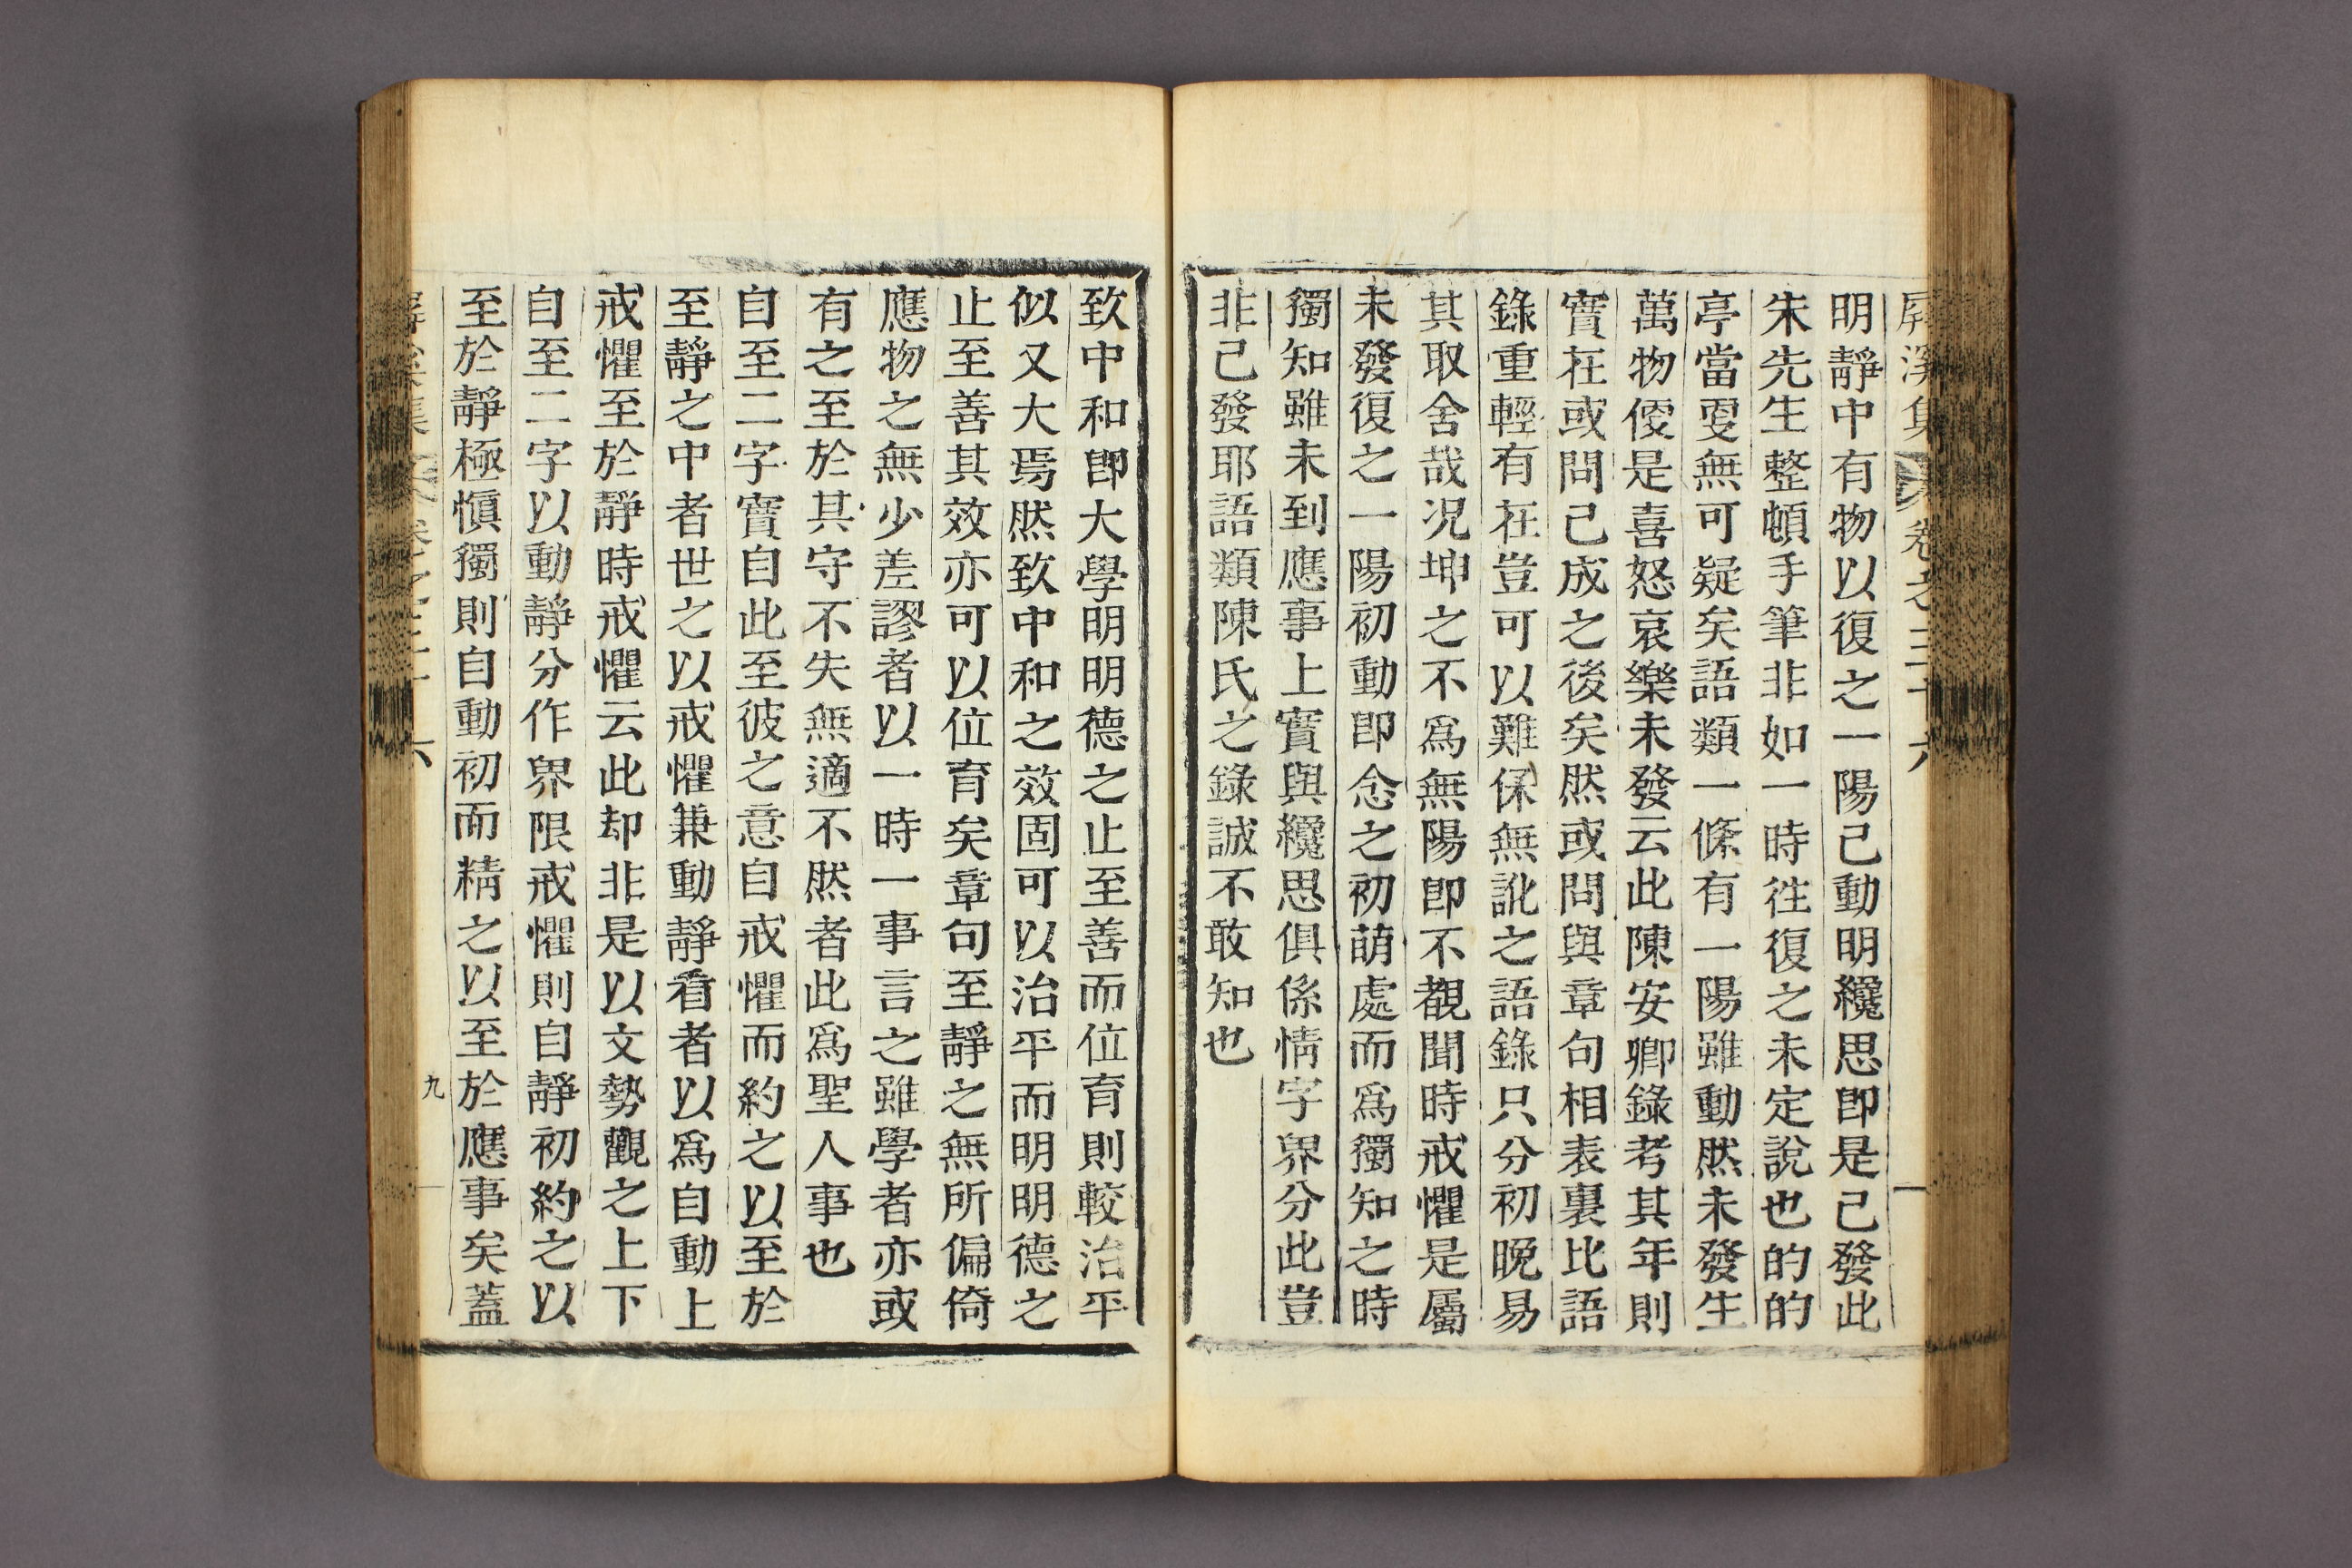 屛溪集 卷之三十六
明靜中有物以復之一陽己動明纔思卽是己發此
朱先生整頓手筆非如一時徃復之未定說也的的
亭當更無可疑矣語類一條有一陽雖動然未發生
萬物便是喜怒哀樂未發云此陳安卿錄考其年則
實在或問己成之後矣然或問與章句相表裏比語
錄重輕有在豈可以難保無訛之語錄只分初晩易
其取舍哉况坤之不爲無陽卽不覩聞時戒懼是屬
未發復之一陽初動卽念之初萌處而爲獨知之時
獨知雖未到應事上實與纔思俱係情字界分此豈
非己發耶語類陳氏之錄誠不敢知也
致中和卽大學明明德之止至善而位育則較治平
似又大焉然致中和之效固可以治平而明明德之
止至善其效亦可以位育矣章句至靜之無所偏倚
應物之無少差謬者以一時一事言之雖學者亦或
有之至於其守不失無適不然者此爲聖人事也
自至二字實自此至彼之意自戒懼而約之以至於
至靜之中者世之以戒懼兼動靜看者以爲自動上
戒懼至於靜時戒懼云此却非是以文勢觀之上下
自至二字以動靜分作界限戒懼則自靜初約之以
至於靜極愼獨則自動初而精之以至於應事矣蓋
九